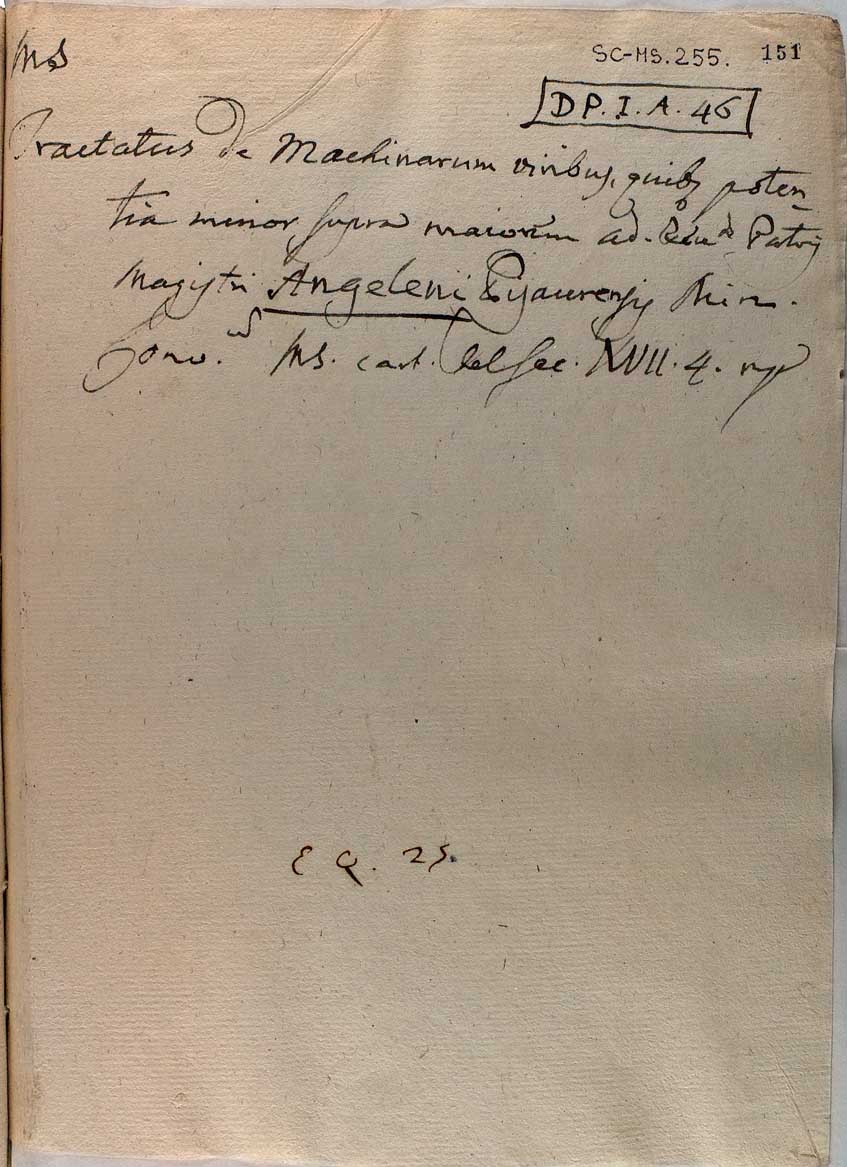 Ms
SC-MS.255. 151
DP.I.A.46
Tractatus de Machinarum viribus, quibs poten-
tia minor supra maiorem ad. Rdu Patris
Magistri Angeleni Pisaurensis Min.
Conv. Ms. cart. del sec. XVII. 4.
E Q. 25.